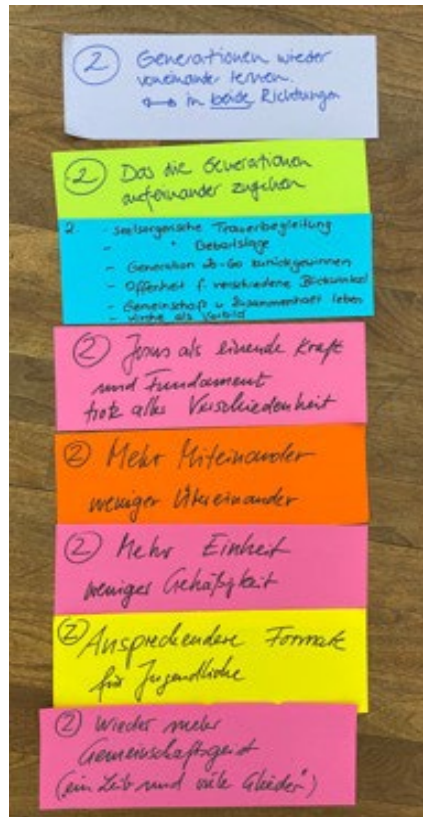 ② Generationen wieder
voneinander lernen.
↔ in beide Richtungen
② Das die Generationen
aufeinander zugehen
2. - seelsorgerische Trauerbegleitung
- " Geburtstage
- Generation 40-60 zurückgewinnen
- Offenheit f. verschiedene Blickwinkel
- Gemeinschaft u Zusammenhalt leben
- Kirche als Vorbild
② Jesus als einende Kraft
und Fundament
trotz aller Verschiedenheit
② Mehr Miteinander
weniger Übereinander
② Mehr Einheit
weniger Gehäßigkeit
② Ansprechendere Formate
für Jugendliche
② Wieder mehr
Gemeinschaftsgeist
("ein Leib und viele Glieder")